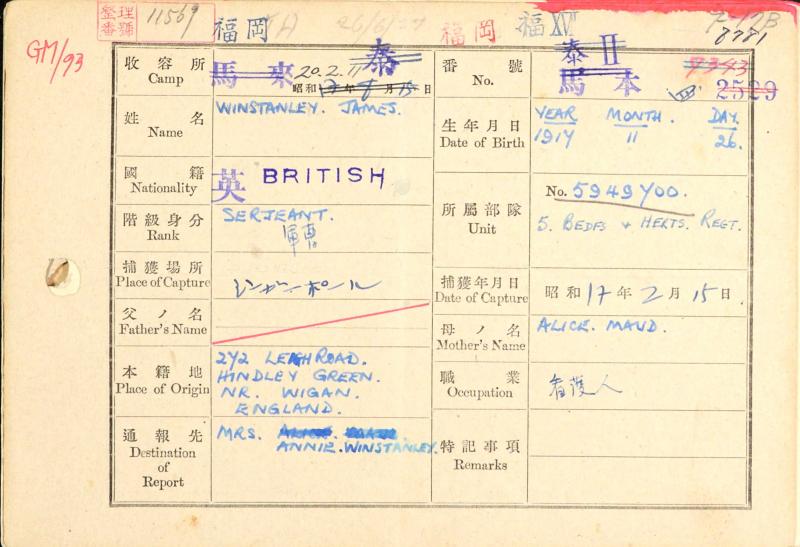 整理番號 11569
福岡
福岡
福XVI
7-12B
8781
GM/93
收容所
Camp
馬來
泰
20.2.11
昭和17年8月15日
番號
No.
泰II
馬本
2529
姓名
Name
WINSTANLEY. JAMES.
生年月日
Date of Birth
YEAR MONTH. DAY.
1917 11 26.
國籍
Nationality
英 BRITISH
階級身分
Rank
SERJEANT.
軍曹
所屬部隊
Unit
No. 5949700.
5. BEDFS & HERTS. REGT.
捕獲場所
Place of Capture
シンガーポール
捕獲年月日
Date of Capture
昭和17年2月15日
父ノ名
Father's Name
母ノ名
Mother's Name
ALICE. MAUD.
本籍地
Place of Origin
272 LEIGH ROAD.
HINDLEY GREEN.
NR. WIGAN.
ENGLAND.
職業
Occupation
看護人
通報先
Destination
of
Report
MRS.
ANNIE. WINSTANLEY.
特記事項
Remarks